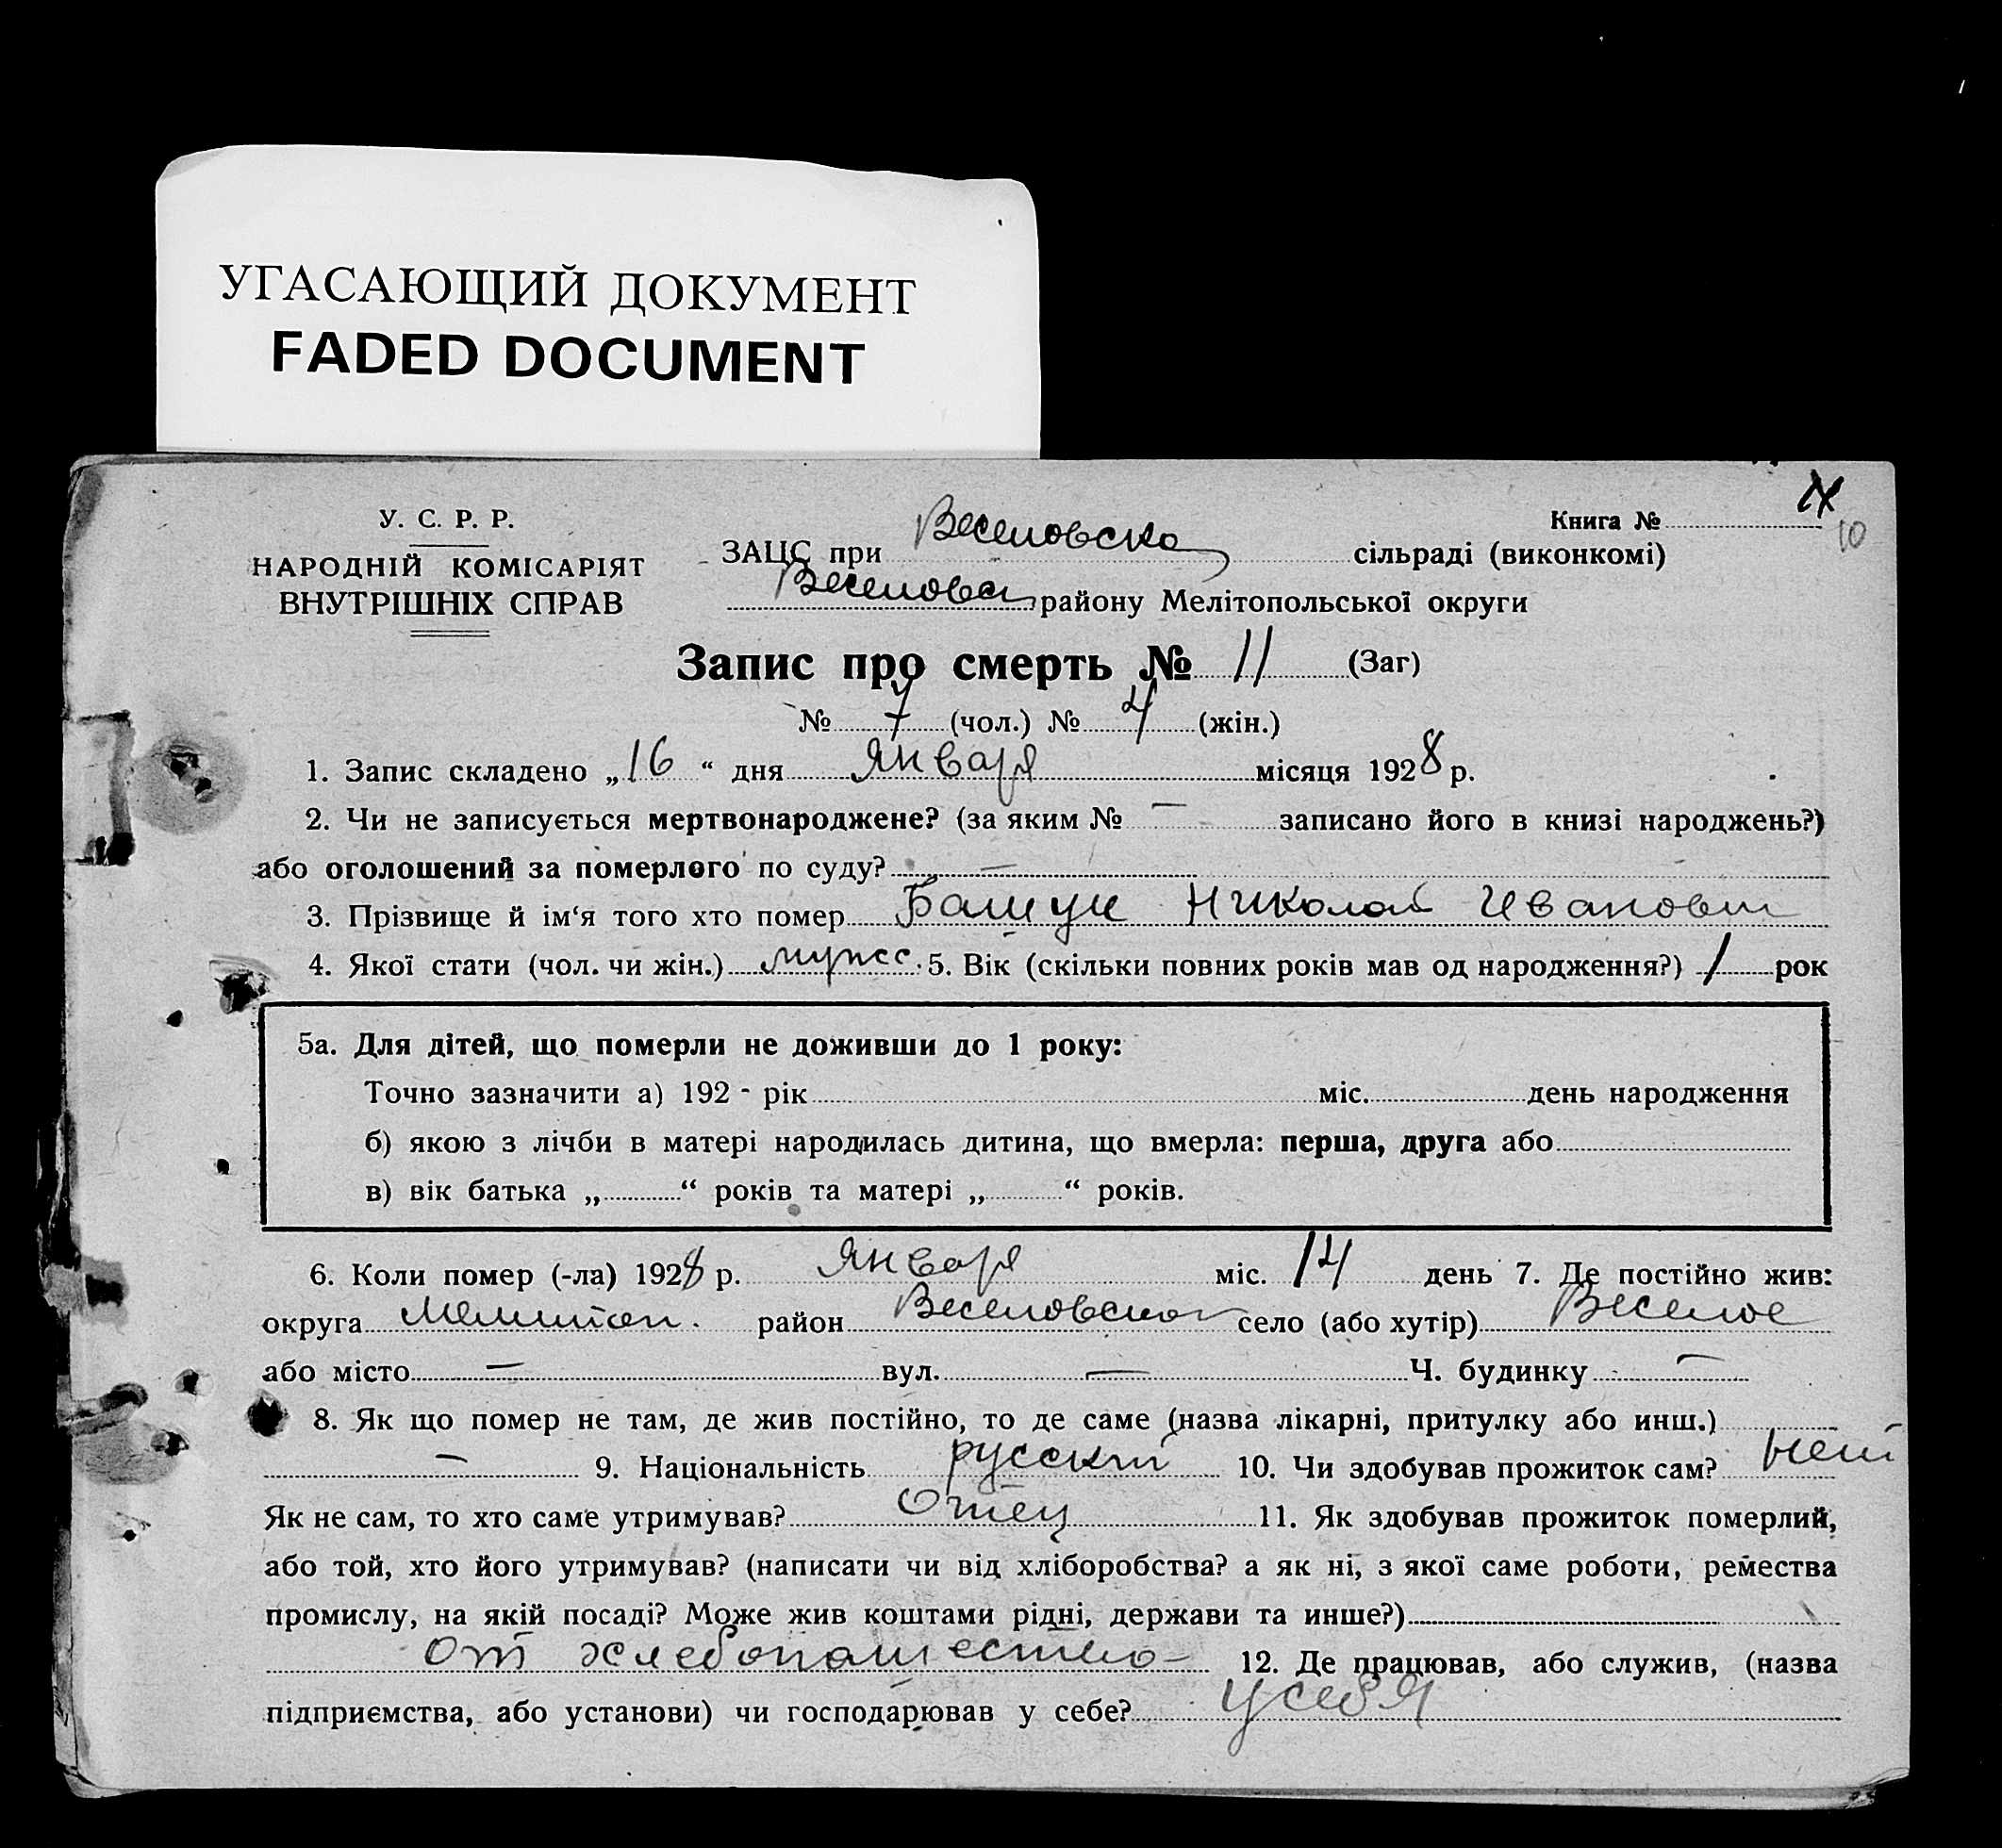 УГАСАЮЩИЙ ДОКУМЕНТ
FADED DOCUMENT
У. С. Р. Р.
НАРОДНІЙ КОМІСАРІЯТ
ВНУТРІШНІХ СПРАВ
Книга №
10
ЗАЦС при Веселовско сільраді (виконкомі)
Веселовск району Мелітопольської округи
Запис про смерть № 11 (Заг)
№ 7 (чол.) № 4 (жін.)
1. Запис складено „16“ дня Января місяця 1928 р.
2. Чи не записується мертвонароджене? (за яким № — записано його в книзі народжень?)
або оголошений за померлого по суду? —
3. Прізвище й ім‘я того хто помер Башук Николай Иванович
4. Якої стати (чол. чи жін.) мужс. 5. Вік (скільки повних років мав од народження?) 1 рок
5а. Для дітей, що померли не доживши до 1 року:
Точно зазначити а) 192 - рік міс. день народження
б) якою з лічби в матері народилась дитина, що вмерла: перша, друга або
в) вік батька „ “ років та матері „ “ років.
6. Коли помер (-ла) 1928 р. Января міс. 14 день 7. Де постійно жив:
округа Мелитоп. район Веселовского село (або хутір) Веселое
або місто — вул. — Ч. будинку —
8. Як що помер не там, де жив постійно, то де саме (назва лікарні, притулку або инш.)
— 9. Національність русский 10. Чи здобував прожиток сам? Нет
Як не сам, то хто саме утримував? Отец 11. Як здобував прожиток померлий,
або той, хто його утримував? (написати чи від хліборобства? а як ні, з якої саме роботи, ремества
промислу, на якій посаді? Може жив коштами рідні, держави та инше?)
от хлебопашество 12. Де працював, або служив, (назва
підприємства, або установи) чи господарював у себе? У себя